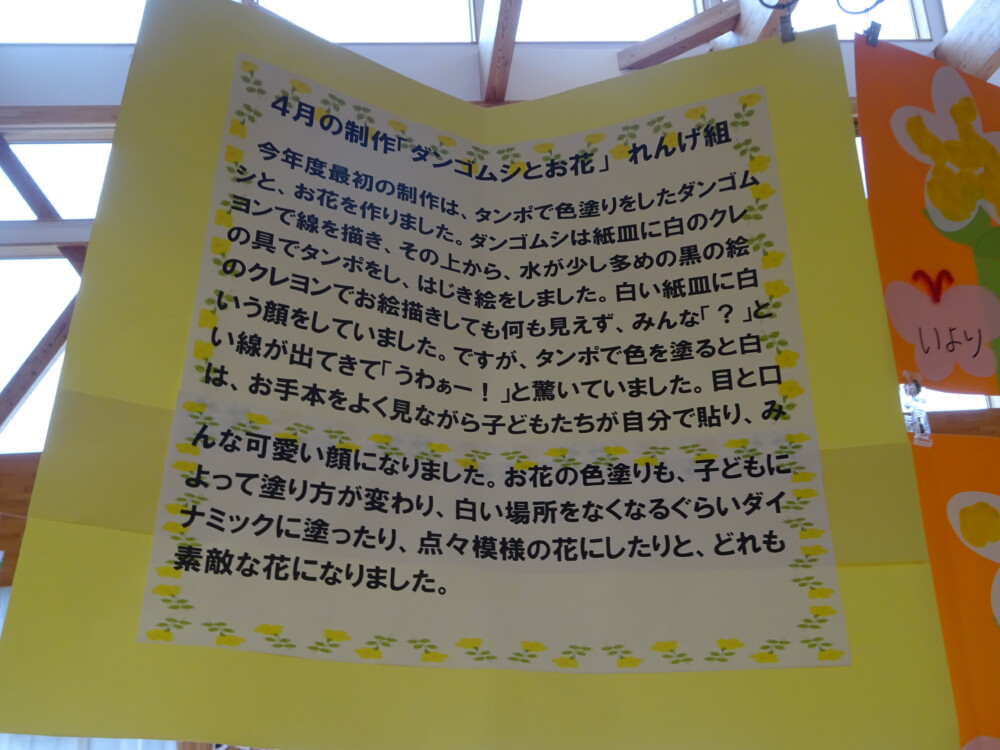 4月の制作「ダンゴムシとお花」 れんげ組
今年度最初の制作は、タンポで色塗りをしたダンゴム
シと、お花を作りました。ダンゴムシは紙皿に白のクレ
ヨンで線を描き、その上から、水が少し多めの黒の絵
の具でタンポをし、はじき絵をしました。白い紙皿に白
のクレヨンでお絵描きしても何も見えず、みんな「？」と
いう顔をしていました。ですが、タンポで色を塗ると白
い線が出てきて「うわぁー！」と驚いていました。目と口
は、お手本をよく見ながら子どもたちが自分で貼り、み
んな可愛い顔になりました。お花の色塗りも、子どもに
よって塗り方が変わり、白い場所をなくなるぐらいダイ
ナミックに塗ったり、点々模様の花にしたりと、どれも
素敵な花になりました。
いより